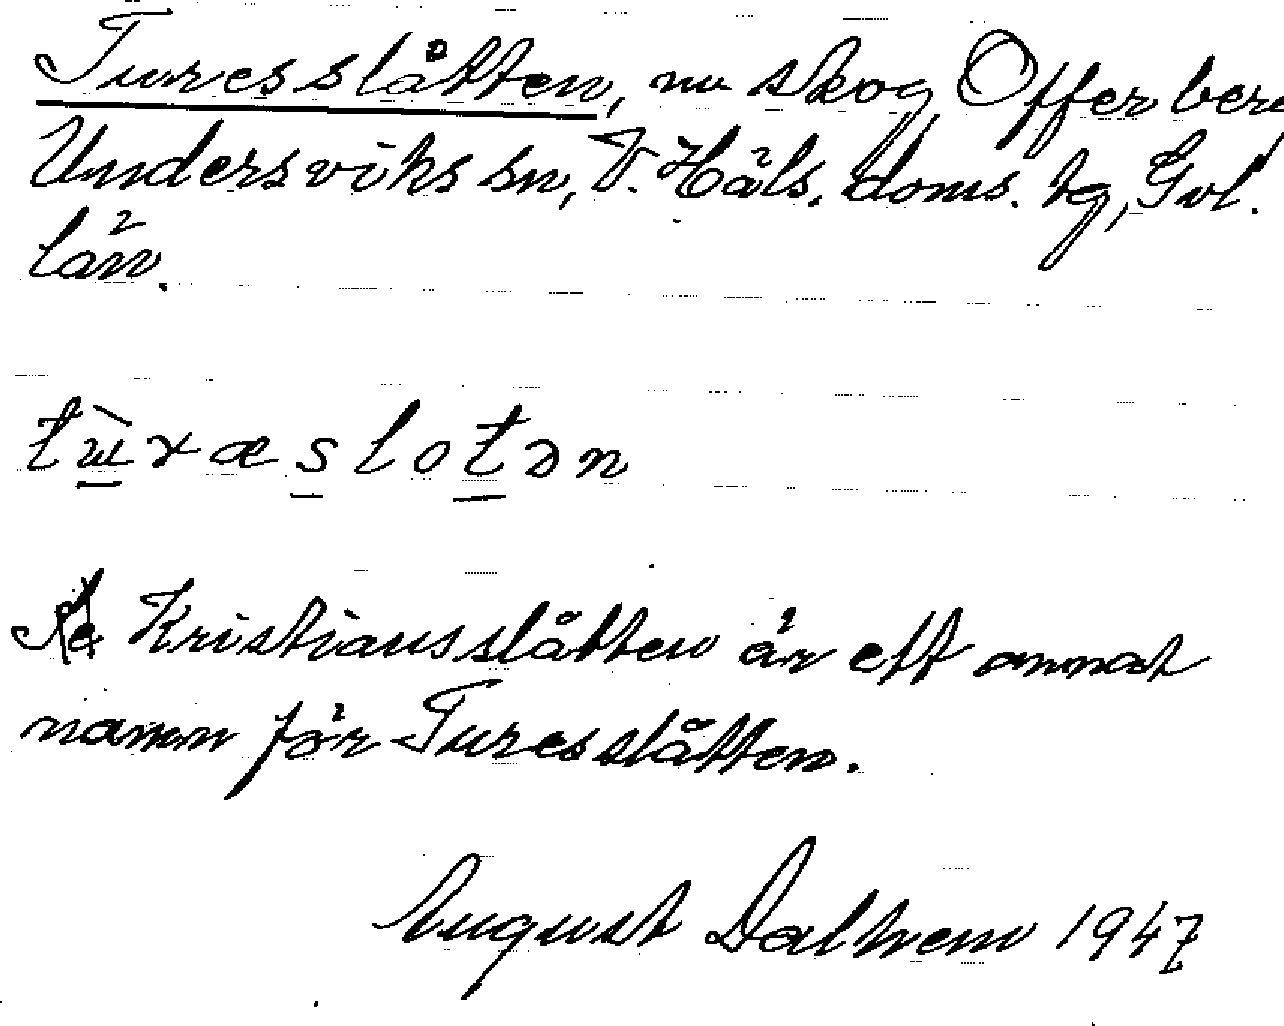 Turesslåtten, nu skog Offerberg
Undersviks sn, V. Häls. doms. hg, Gvl.
län.
tùræslotən
Kristiansslåtten är ett annat
namn för Turesslåtten.
August Dalhem 1947